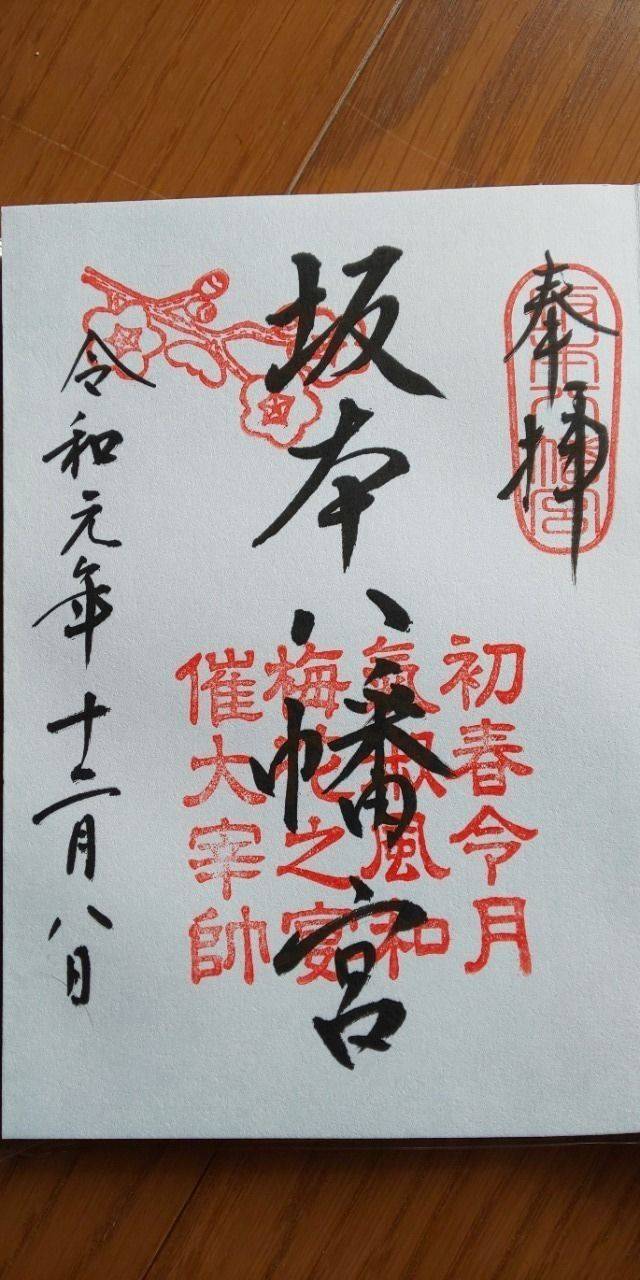 奉拝
坂本八幡宮
坂本八幡宮
初春令月
氣淑風和
梅花之宴
催大宰帥
令和元年十二月八日